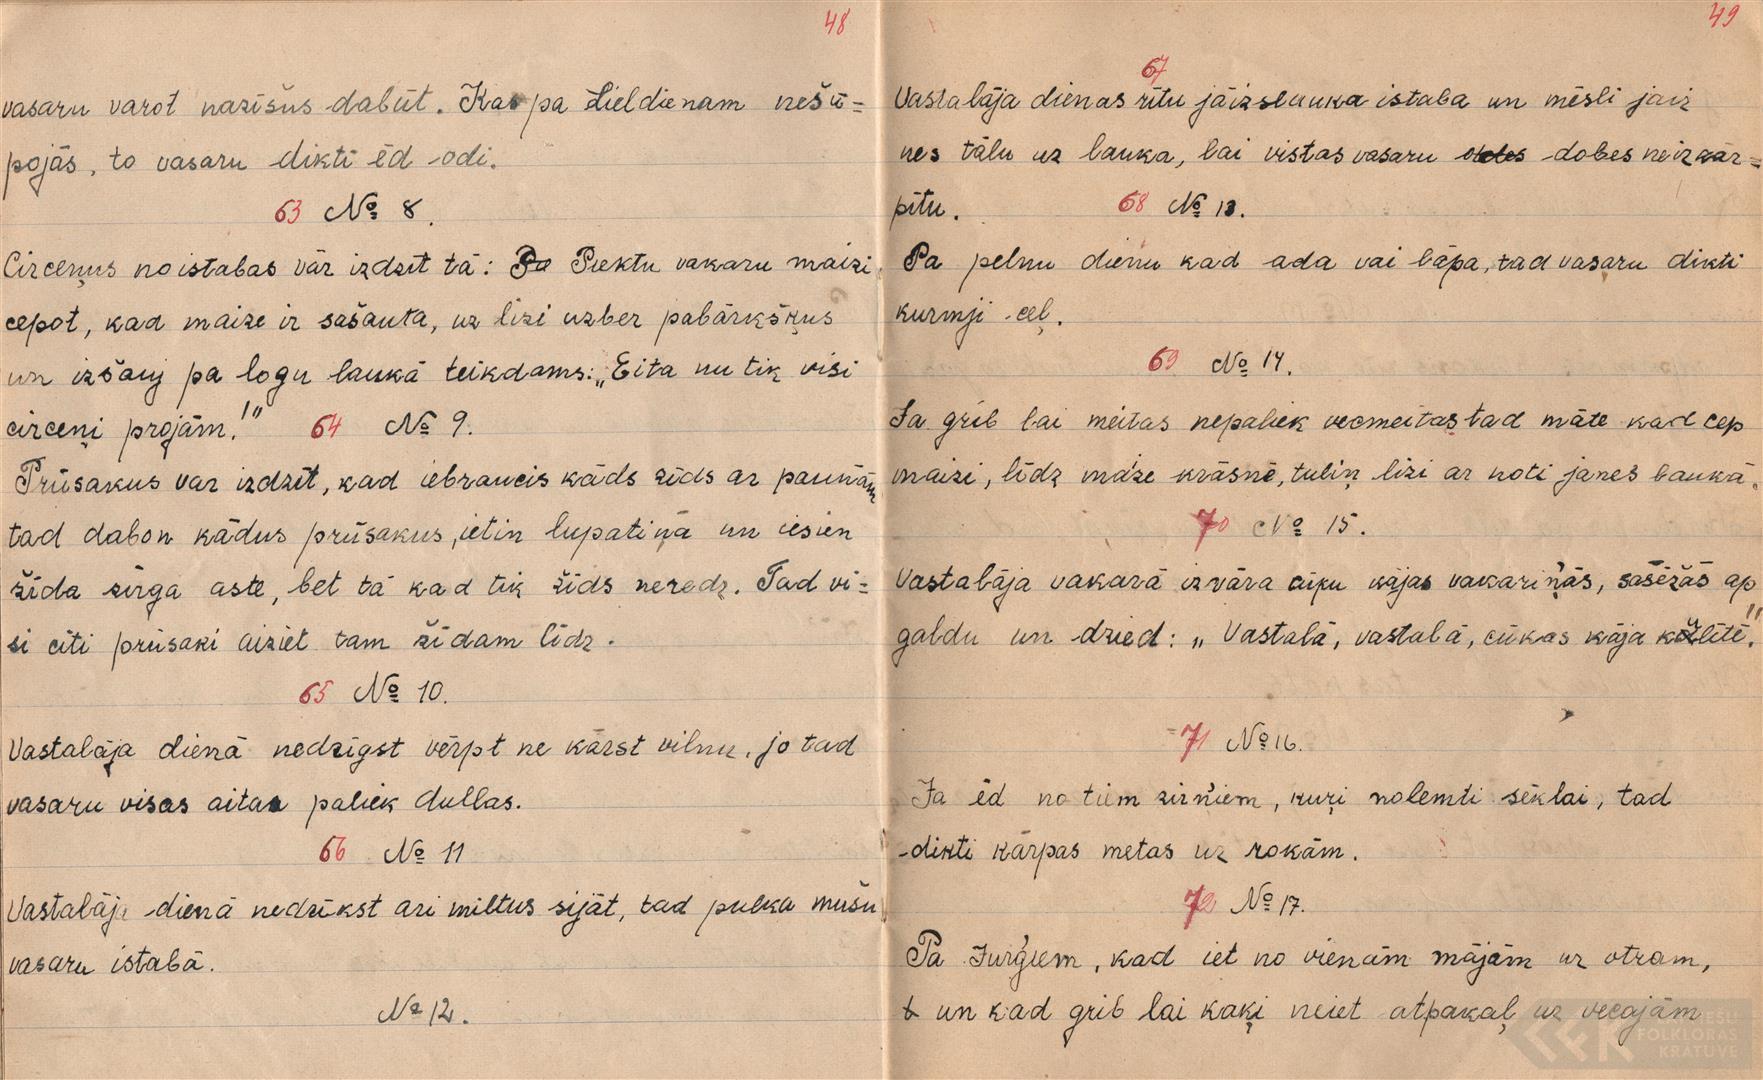 48
vasaru varot nazīšus dabūt. Kas pa Lieldienam nešū=
pojās, to vasaru dikti ēd odi.
63 № 8.
Circeņus no istabas var izdzīt tā: Pa Piektu vakaru maizi
cepot, kad maize ir sašauta, uz lizi uzber pabārkšķus
un izšauj pa logu laukā teikdams: „Eita nu tik visi
circeņi projām!" 64 № 9.
Prūsakus var izdzīt, kad iebraucis kāds žīds ar paunām
tad dabon kādus prūsakus, ietin lupatiņā un iesien
žīda zirga astē, bet tā kad tik žīds neredz. Tad vi=
si citi prūsaki aiziet tam žīdam līdz.
65 № 10.
Vastalāja dienā nedrīgst vērpt ne kārst vilnu, jo tad
vasaru visas aitas paliek dullas.
66 № 11
Vastalāja dienā nedrīkst arī miltus sijāt, tad pulka mušu
vasaru istabā.
№ 12.
49
67
Vastalāja dienas rītu jāizslauka istaba un mēsli jaiz
nes tālu uz lauka, lai vistas vasaru dobes neizkār=
pītu. 68 № 13.
Pa pelnu dienu kad ada vai lāpa, tad vasaru dikti
kurmji ceļ.
69 № 14.
Ja grib lai meitas nepaliek vecmeitas tad māte kad cep
maizi, līdz maize krāsnē, tuliņ lizi ar noti jānes laukā.
70 № 15.
Vastalāja vakarā izvāra cūku kājas vakariņās, sasēžās ap
galdu un dzied: „Vastalā, vastalā, cūkas kāja kūrlītē."
71 № 16.
Ja ēd no tiem zirņiem, kuŗi nolemti sēklai, tad
dikti kārpas metas uz rokām.
72 № 17.
Pa Jurģiem, kad iet no vienām mājām uz otram,
un kad grib lai kaķi neiet atpakaļ uz vecajām
LATVIEŠU
FOLKLORAS
KRĀTUVE